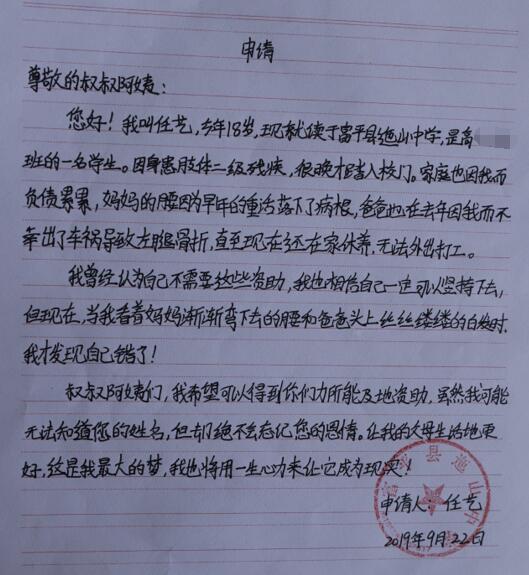 申请
尊敬的叔叔阿姨：
您好！我叫任艺，今年18岁，现就读于富平县迤山中学，是高
班的一名学生。因身患肢体二级残疾，很晚才踏入校门。家庭也因我而
负债累累，妈妈的腰因为早年的重活落下了病根，爸爸也在去年因我而不
幸出了车祸导致左腿骨折，直至现在还在家休养，无法外出打工。
我曾经认为自己不需要这些资助，我也相信自己一定可以坚持下去，
但现在，当我看着妈妈渐渐弯下去的腰和爸爸头上丝丝缕缕的白发时，
我才发现自己错了！
叔叔阿姨们，我希望可以得到你们力所能及地资助，虽然我可能
无法知道您的姓名，但却绝不会忘记您的恩情。让我的父母生活地更
好，这是我最大的梦，我也将用一生心力来让它成为现实！
申请人：任艺
2019年9月22日